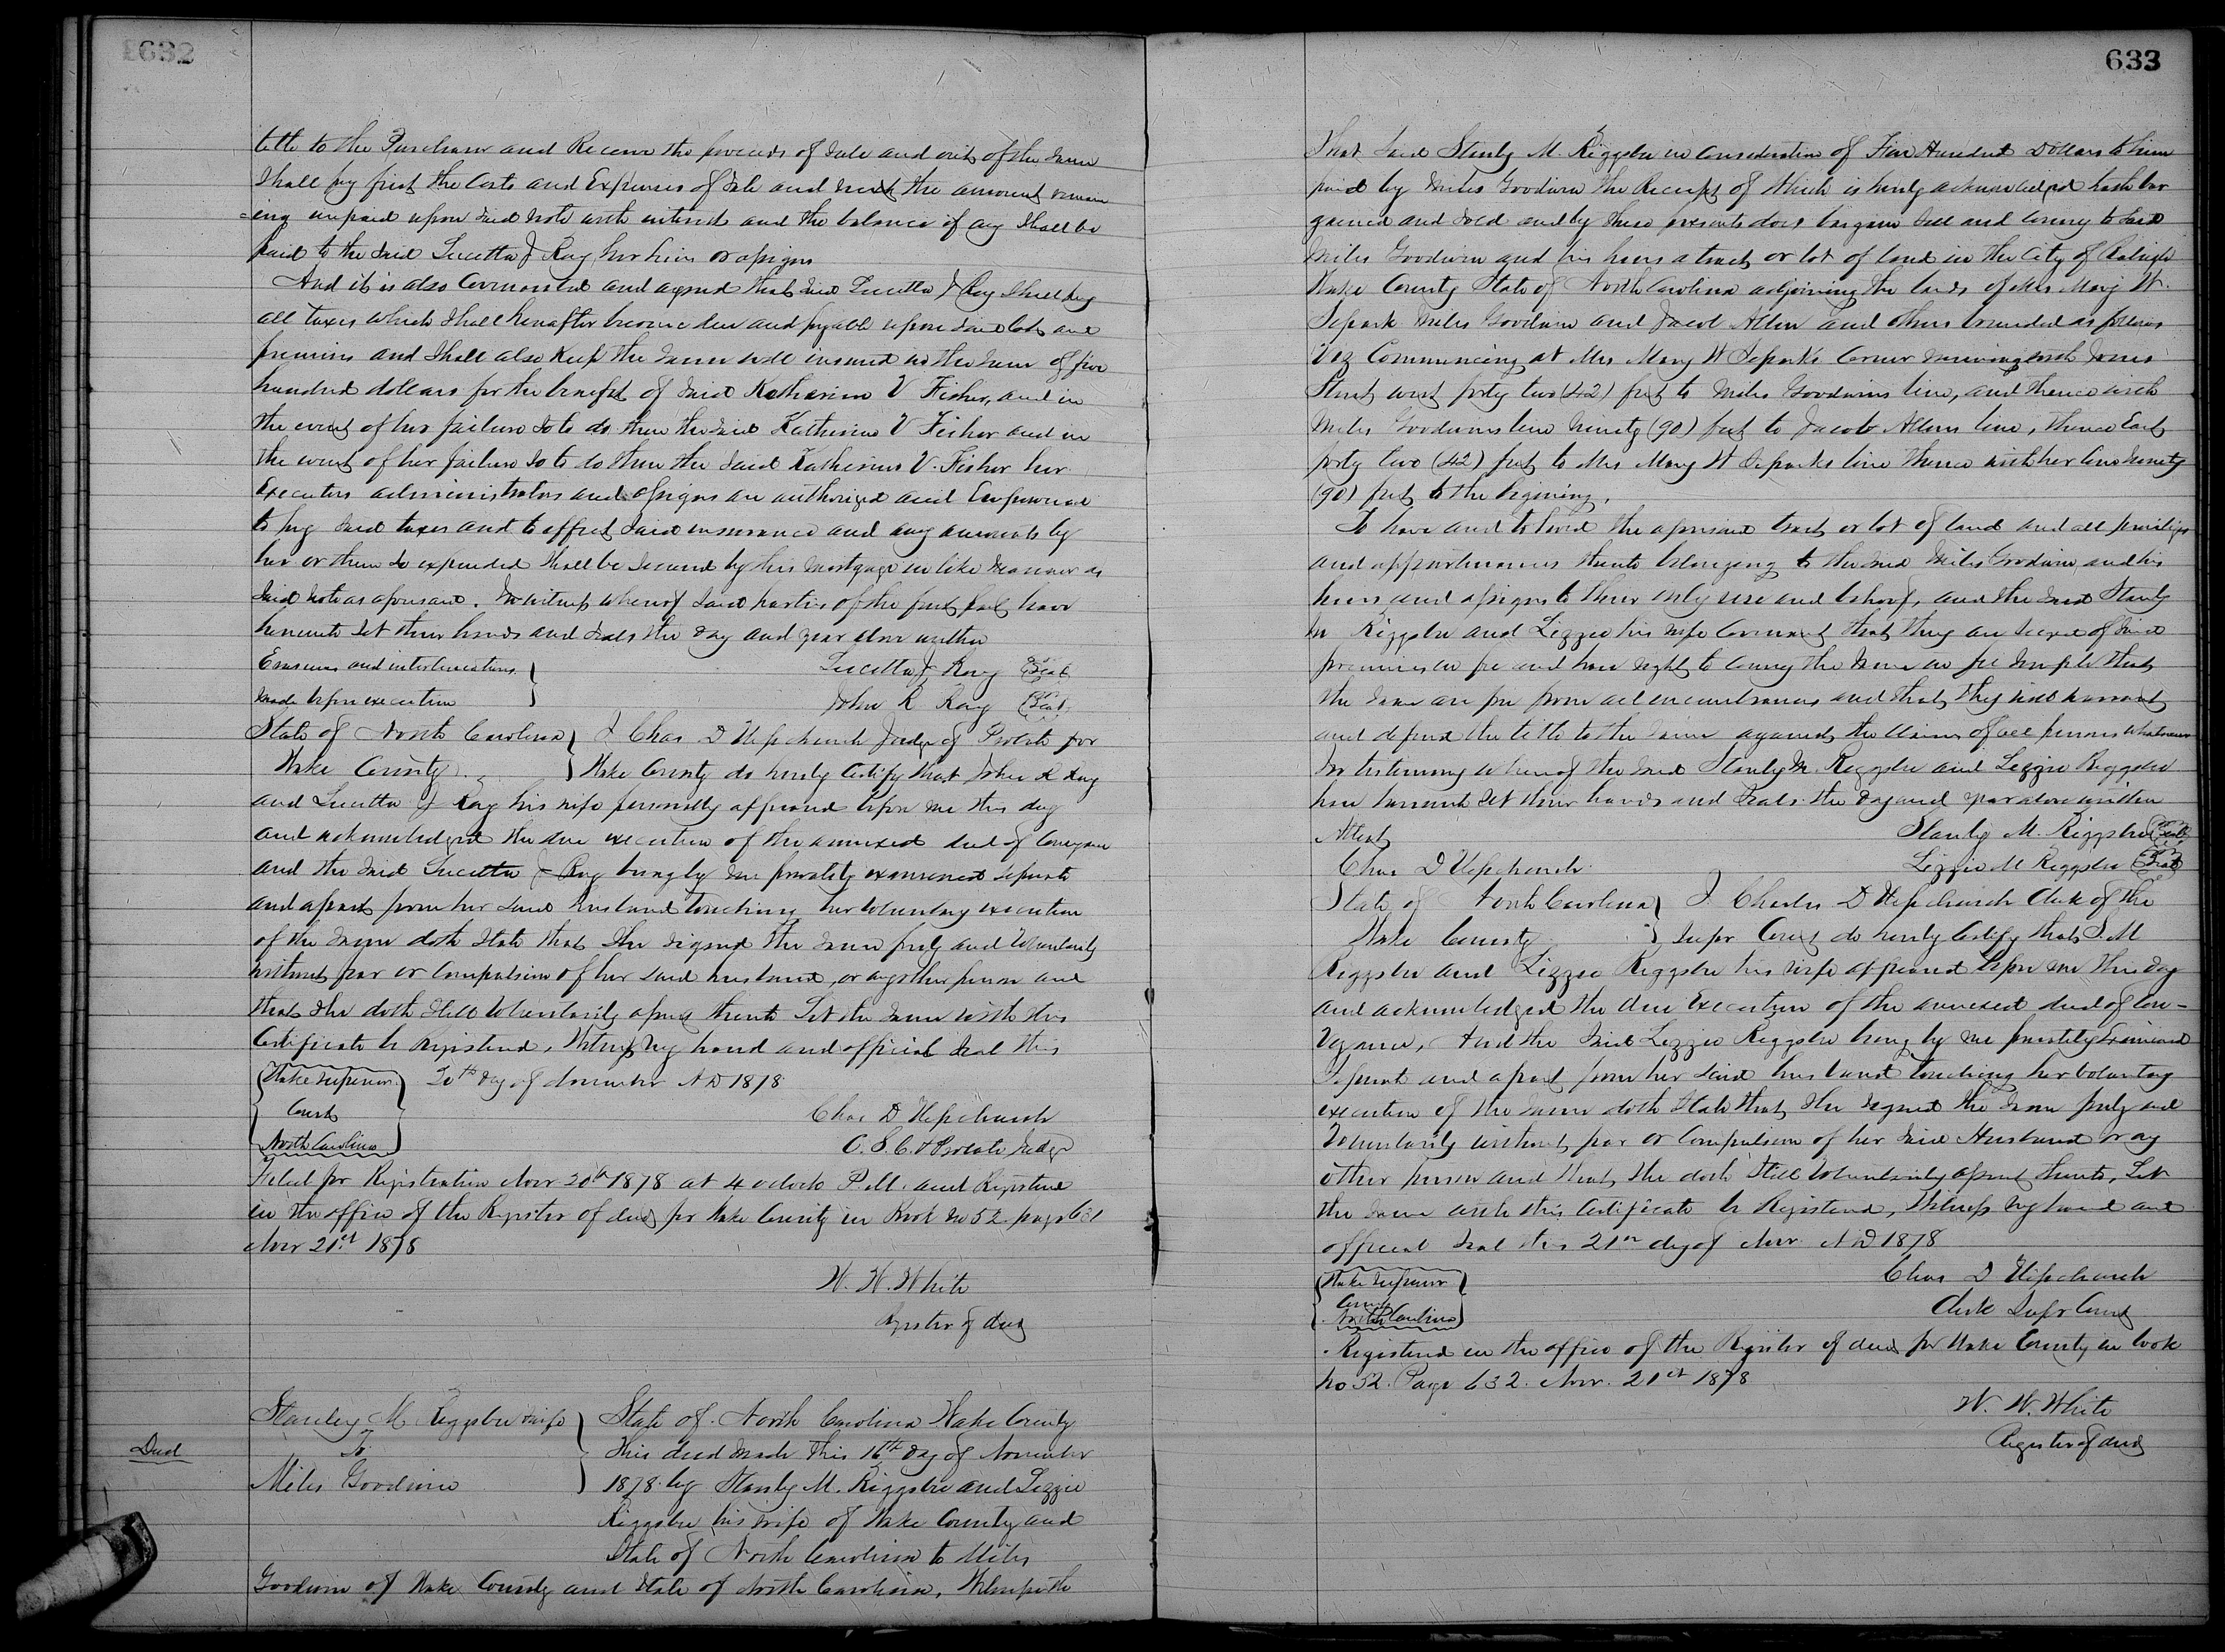 632
title to the Purchaser and Receive the proceeds of sale and out of the same
Shall pay first the Costs and Expenses of Sale and next the amount remain
=ing unpaid upon said note with interest and the balance if any shall be
paid to the said Lucetta J Ray her heirs or assigns
And it is also Covenanted and agreed that said Lucetta J Ray shall pay
all taxes which shall hereafter become due and payable upon said lots and
premises and shall also Keep the same well insured in the sum of five
hundred dollars for the benefit of said Katharine V Fisher, and in
the event of her failure so to do then the said Katherine V Fisher and in
the event of her failure so to do then the said Katherine V. Fisher her
Executors administrators and assigns are authorized and Empowered
to pay said taxes and to effect said insurance and any amounts by
her or them so expended shall be secured by this mortgage in like manner as
said note as aforesaid. In witness whereof said parties of the first part have
hereunto set their hands and seals the day and year above written
Erasures and interlineations } Lucetta J Ray (Seal)
made before execution } John R Ray (Seal)
State of North Carolina } I Chas D Upchurch Judge of Probate for
Wake County } Wake County do hereby Certify that John R Ray
and Lucetta J Ray his wife personally appeared before me this day
and acknowledged the due execution of the annexed deed of Conveyance
and the said Lucetta J Ray being by me privately examined separate
and apart from her said husband touching her voluntary execution
of the same doth state that she signed the same freely and Voluntarily
without fear or Compulsion of her said husband, or any other person and
that she doth still Voluntarily assent thereto Let the same with this
Certificate be Registered, Witness my hand and official Seal this
{Wake Superior} 20th day of November AD 1878
Court Chas D Upchurch
North Carolina C. S. C. & Probate Judge
Filed for Registration Nov 20th 1878 at 4 oclock P.M. and Registered
in the office of the Register of deeds for Wake County in Book No 52 page 631
Nov 21st 1878
W. W. White
Register of deeds
Stanley M Riggsbee & wife } State of North Carolina Wake County
Deed To This deed made this 16th day of November
Miles Goodwin } 1878 by Stanly M. Riggsbee and Lizzie
Riggsbee his wife of Wake County and
State of North Carolina to Miles
Goodwin of Wake County and State of North Carolina, Witnesseth
633
That said Stanly M. Riggsbee in Consideration of Five Hundred Dollars to him
paid by Miles Goodwin the Receipt of which is hereby acknowledged hath bar
gained and sold and by these presents does bargain sell and convey to said
Miles Goodwin and his heirs a tract or lot of land in the City of Raleigh
Wake County State of North Carolina adjoining the lands of Mrs Mary W.
Separk Miles Goodwin and Jacob Allen and others bounded as follows
Viz Commencing at Mrs Mary W Separks Corner running with Jones
Street west forty two (42) feet to Miles Goodwins line, and thence with
Miles Goodwins line Ninety (90) feet to Jacob Allens line, thence East
forty two (42) feet to Mrs Mary W Separks line thence with her line ninety
(90) feet to the Begining.
To have and to hold the aforesaid tract or lot of land and all privileges
and appurtenances thereto belonging to the said Miles Goodwin and his
heirs and assigns to their only use and behoof, and the said Stanly
M Riggsbee and Lizzie his wife Covenant that they are seized of said
premises in fee and have right to convey the same in fee simple that
the same are free from all encumbrances and that they will warrant
and defend the title to the same against the claims of all persons whatsoever
In testimony whereof the said Stanly M. Riggsbee and Lizzie Riggsbee
have hereunto set their hands and seals the day and year above written
Attest Stanly M. Riggsbee (Seal)
Chas D Upchurch Lizzie M Riggsbee (Seal)
State of North Carolina } I Charles D Upchurch Clerk of the
Wake County } Supr Court do hereby Certify that S. M
Riggsbee and Lizzie Riggsbee his wife appeared before me this day
and acknowledged the due Execution of the annexed deed of Con-
veyance, And the said Lizzie Riggsbee being by me privately Examined
Separate and apart from her said husband touching her voluntary
execution of the same doth state that she signed the same freely and
Voluntarily without fear or Compulsion of her said Husband or any
other person and that she doth still Voluntarily assent thereto, Let
the same with this Certificate be Registered, Witness my hand and
official seal this 21st day of Nov. AD 1878
{Wake Superior} Chas D Upchurch
Court Clerk Supr Court
North Carolina
Registered in the office of the Register of deeds for Wake County in book
No 52. Page 632. Nov. 21st 1878
W. W. White
Register of deeds